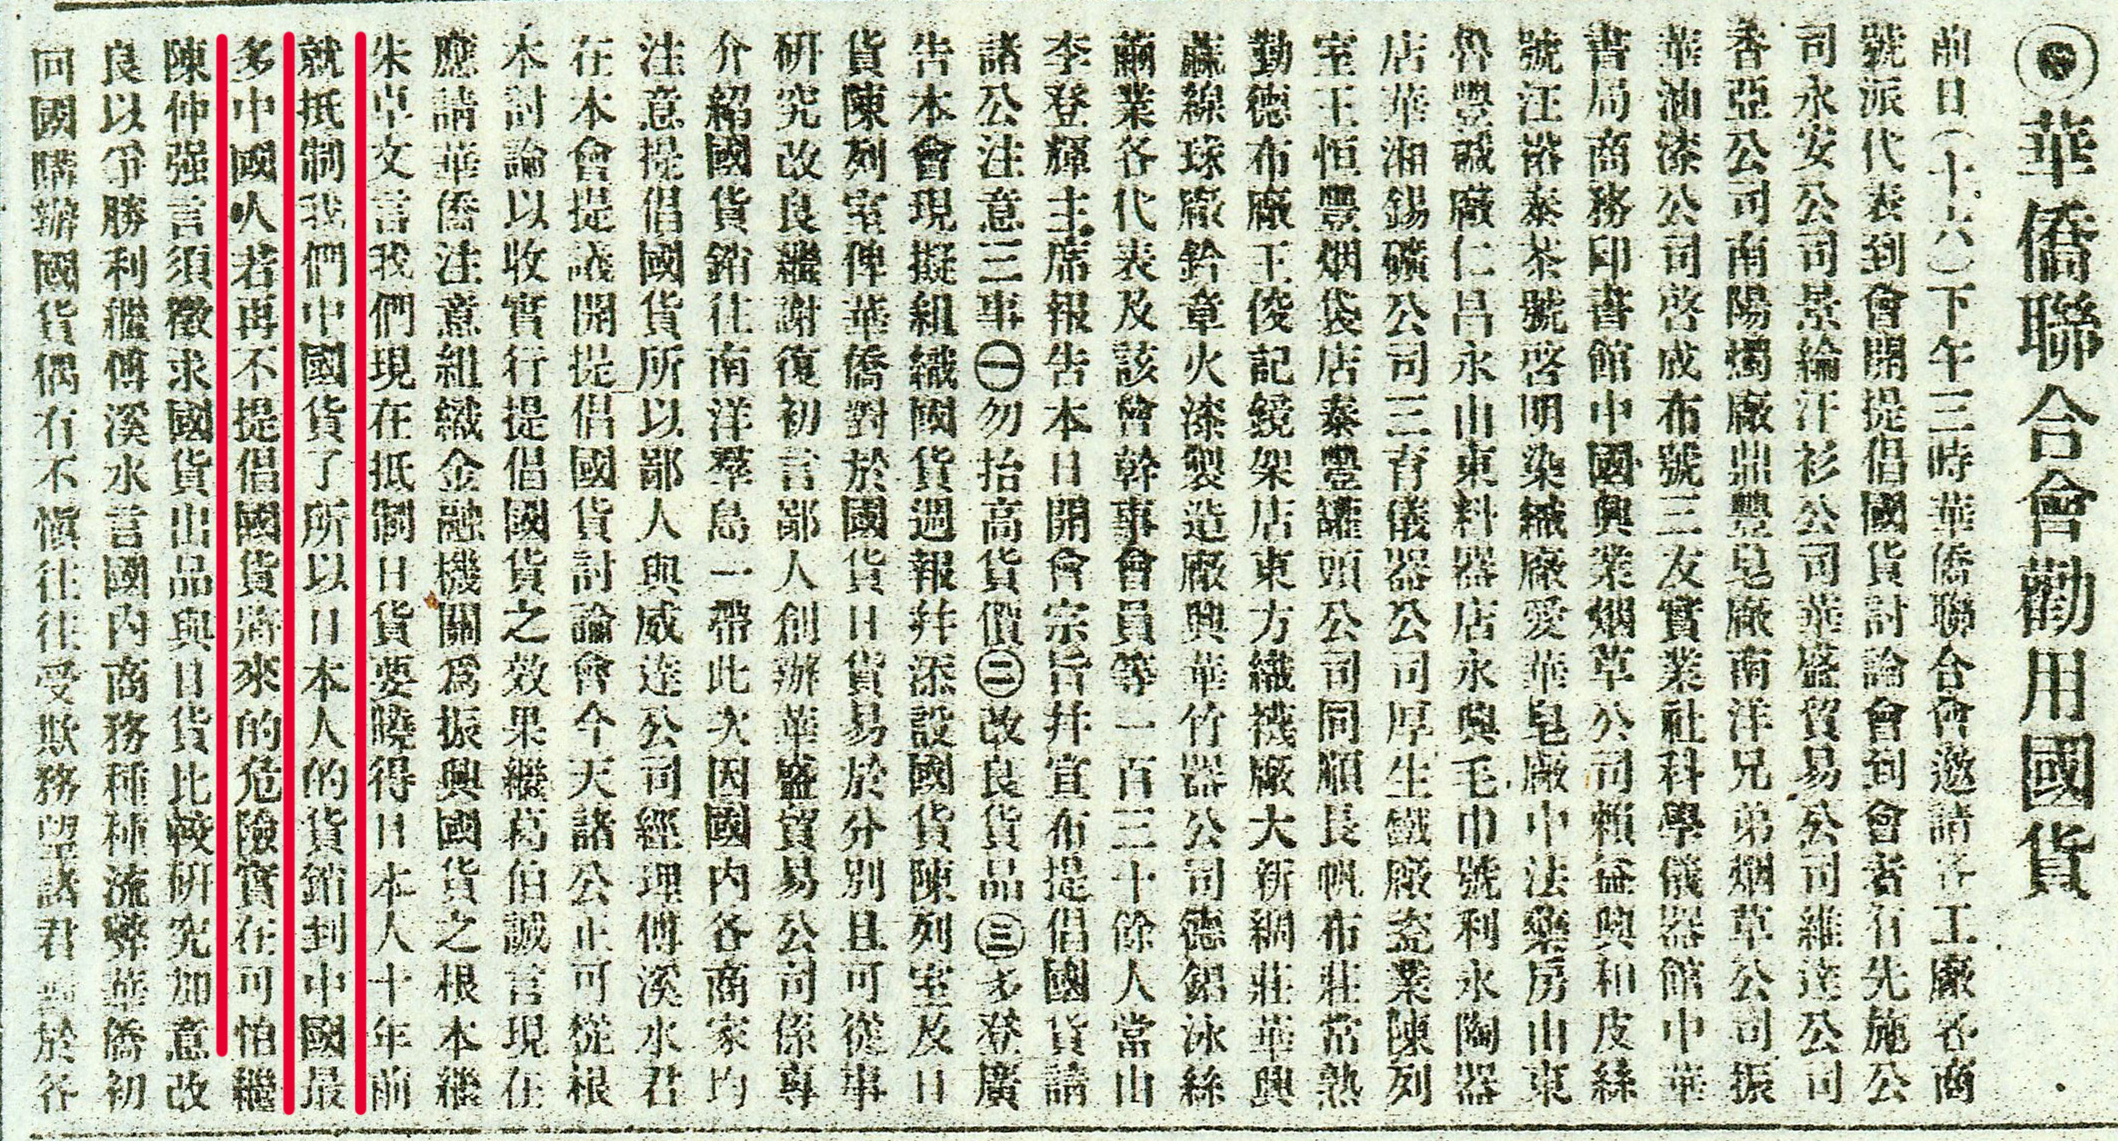 華僑聯合會勸用國貨
前日(十六)下午三時華僑聯合會邀請各工廠各商
號派代表到會開提倡國貨討論會到會者有先施公
司永安公司景綸汗衫公司華盛貿易公司維達公司
香亞公司南陽燭廠鼎豐皂廠南洋兄弟烟草公司振
華油漆公司啓成布號三友實業社科學儀器館中華
書局商務印書館中國興業烟草公司賴益興和皮絲
號汪裕泰茶號啓明染織廠愛華皂廠中法藥房山東
魯豐碱廠仁昌永山東料器店永興毛巾號利永陶器
店華湘錫礦公司三育儀器公司厚生鐵廠瓷業陳列
室王恒豐烟袋店泰豐罐頭公司同順長帆布莊常熟
勤德布廠王俊記鏡架店東方織襪廠大新綢莊華興
蔴線球廠鈴章火漆製造廠興華竹器公司德錩泳絲
繭業各代表及該會幹事會員等一百三十餘人當由
李登輝主席報告本日開會宗旨幷宣布提倡國貨請
諸公注意三事㊀勿抬高貨價㊁改良貨品㊂多登廣
告本會現擬組織國貨週報幷添設國貨陳列室及日
貨陳列室俾華僑對於國貨日貨易於分別且可從事
研究改良繼謝復初言鄙人創辦華盛貿易公司係專
介紹國貨銷往南洋羣島一帶此次因國內各商家均
注意提倡國貨所以鄙人與威達公司經理傅溪水君
在本會提議開提倡國貨討論會今天諸公正可從根
本討論以收實行提倡國貨之效果繼葛伯誠言現在
應請華僑注意組織金融機關爲振興國貨之根本繼
朱卓文言我們現在抵制日貨要曉得日本人十年前
就抵制我們中國貨了所以日本人的貨銷到中國最
多中國人若再不提倡國貨將來的危險實在可怕繼
陳仲强言須徵求國貨出品與日貨比較研究加意改
良以爭勝利繼傅溪水言國內商務種種流弊華僑初
回國購辦國貨偶有不愼往往受欺務望諸君對於各